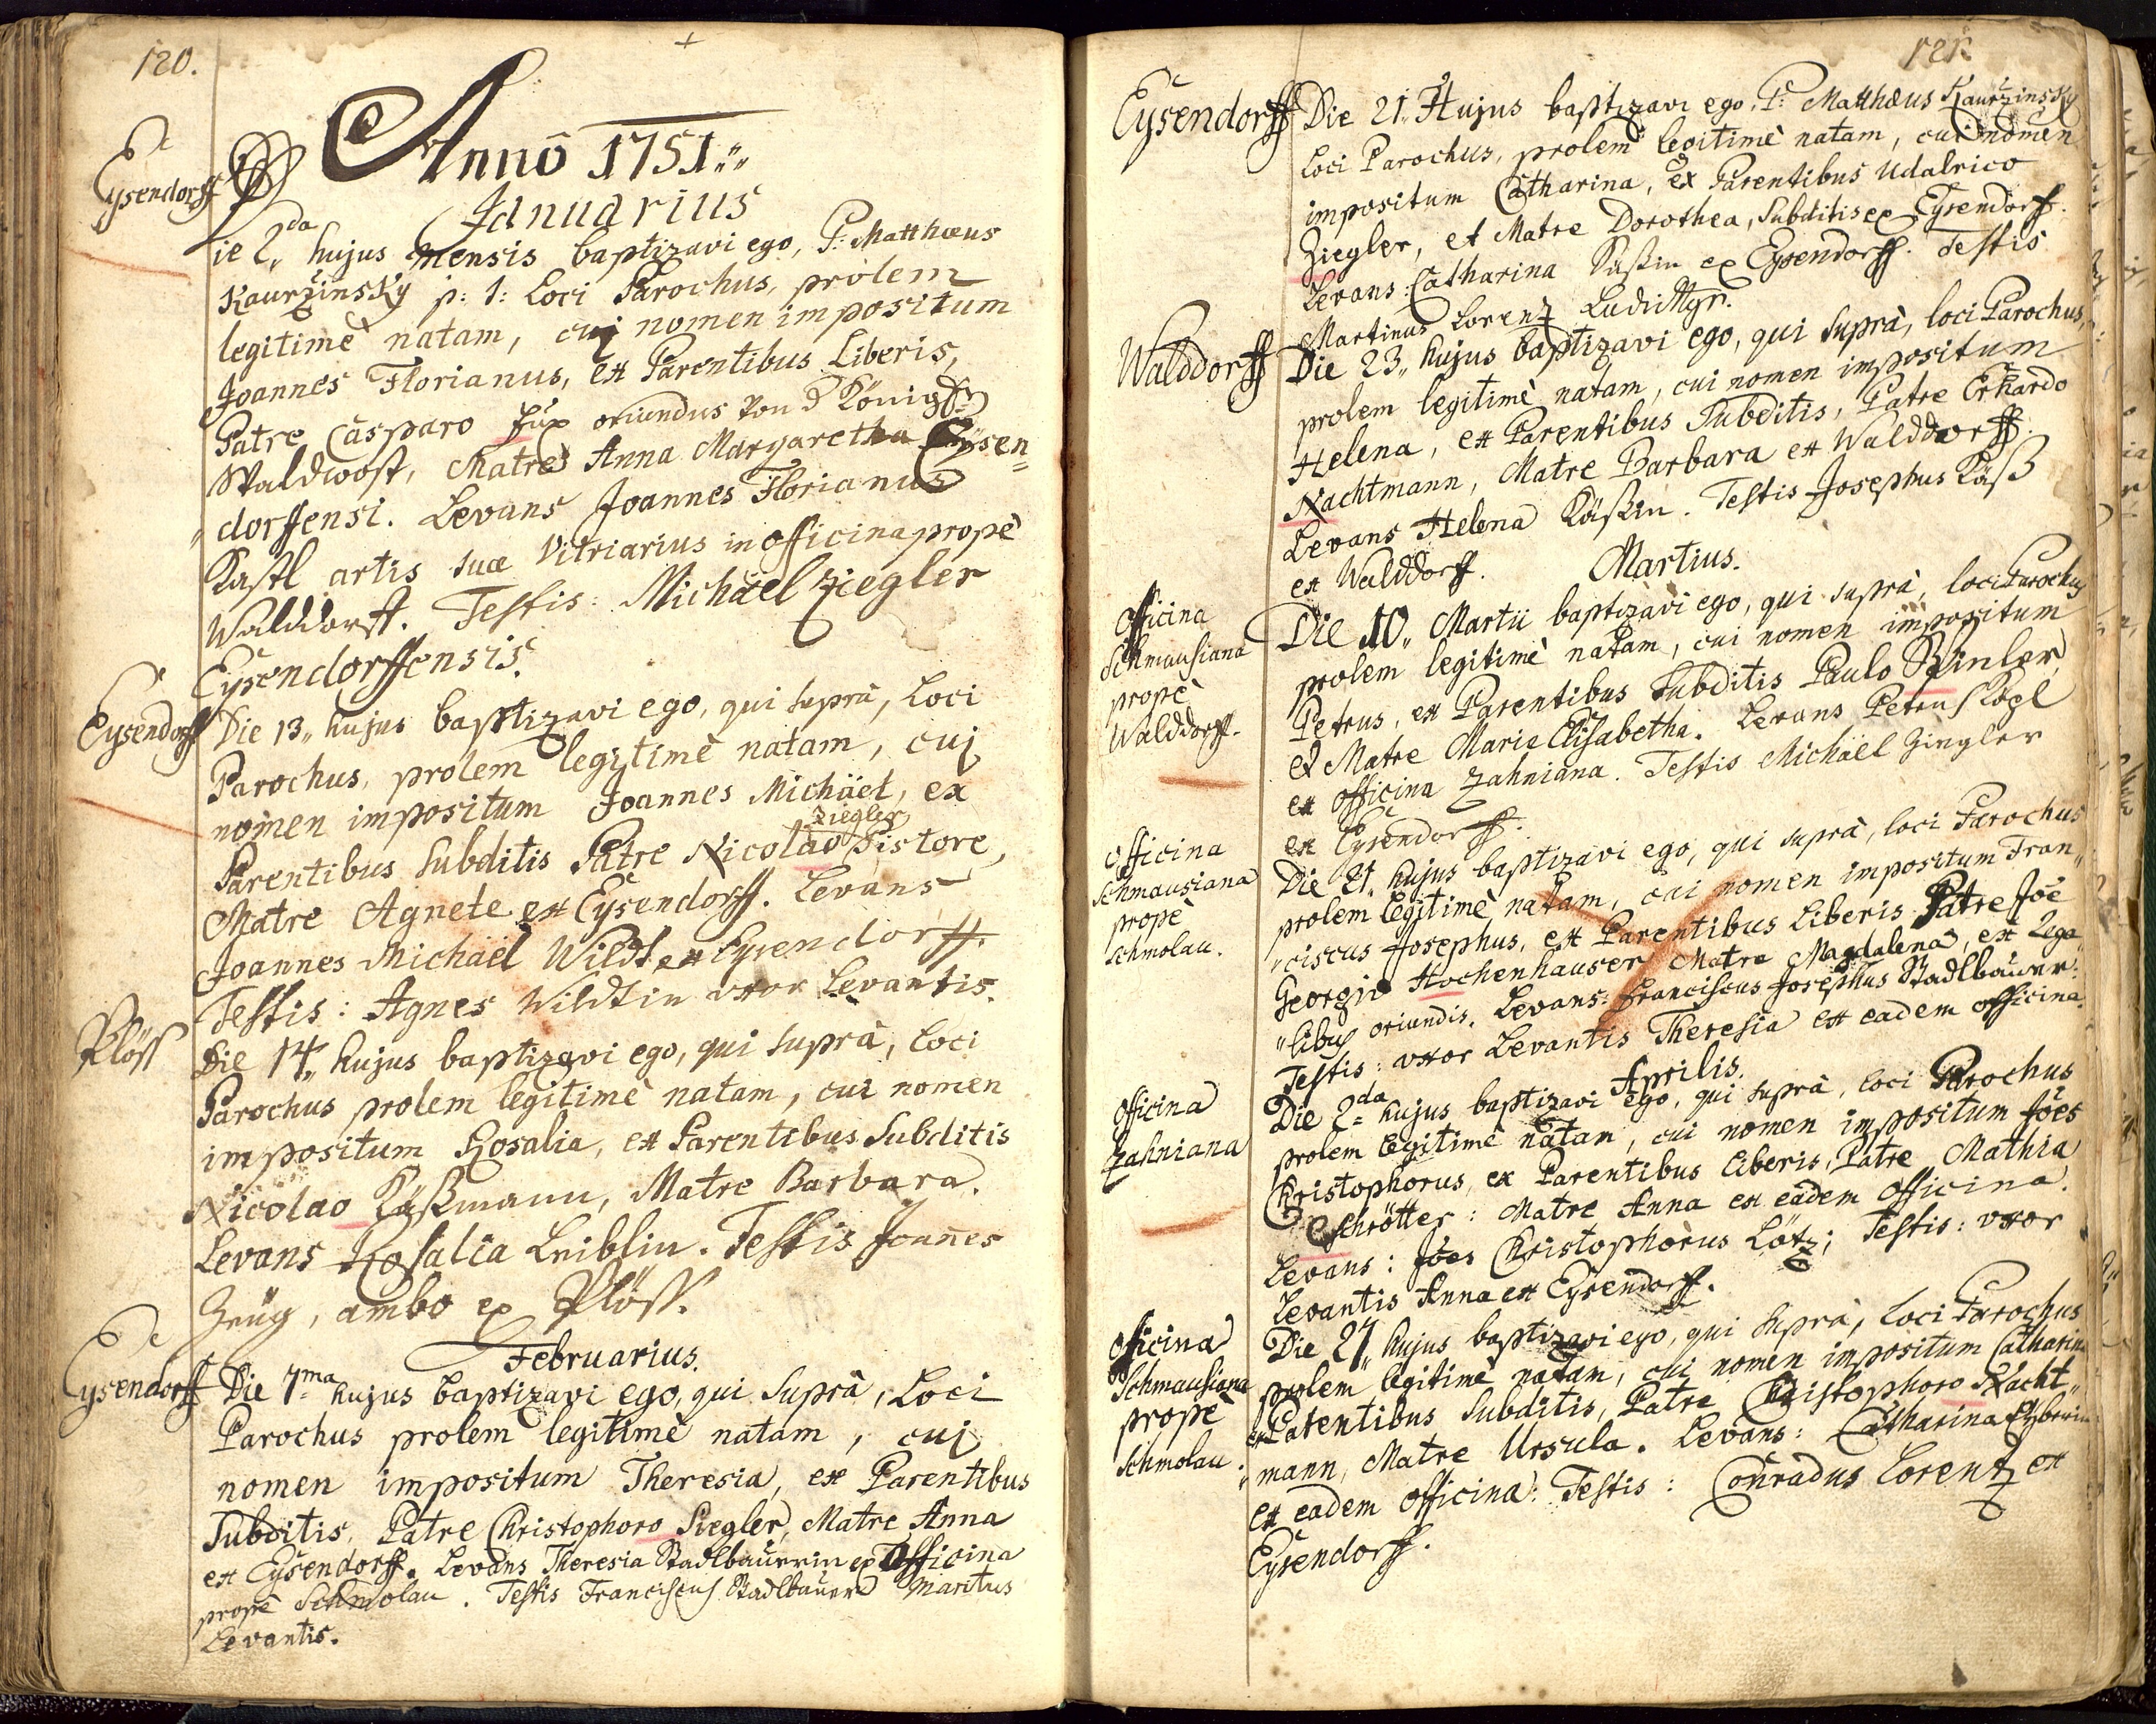 120.
Annô 1751.
Januarius
Eysendorff
Die 2da hujus mensis baptizavi ego, P: Matthæus
Kauržinsky p: t: Loci Parochus, prolem
legitimè natam, cuj nomen impositum
Joannes Florianus, ex Parentibus Liberis,
Patre Casparo Fux oriundus von d Königl:
Waldwost, Matre Anna Margaretha Eysen=
dorffensi. Levans Joannes Florianus
Kastl artis suæ Vitriarius in officina propè
Walddorff. Testis: Michäel Ziegler
Eysendorffensis.
Eysendorff
Die 13„ hujus baptizavi ego, qui suprà, Loci
Parochus, prolem legitimè natam, cuj
nomen impositum Joannes Michäel, ex
Ziegler
Parentibus subditis Patre Nicolao Pistore,
Matre Agnete ex Eysendorff. Levans
Joannes Michäel Wildt ex Eysendorff.
Testis: Agnes Wildtin uxor Levantis.
Plöss
Die 14„ hujus baptizavi ego, qui suprà, Loci
Parochus prolem legitimè natam, cui nomen
impositum Rosalia, ex Parentibus Subditis
Nicolao Käßmann, Matre Barbara.
Levans Rosalia Leiblin. Testis Joañes
Zeüg, ambo ex Plöss.
Februarius.
Eysendorff
Die 7ma hujus baptizavi ego, qui suprà, Loci
Parochus prolem legitimè natam, cuj
nomen impositum Theresia, ex Parentibus
Subditis, Patre Christophoro Siegler, Matre Anna
ex Eysendorff. Levans Theresia Stadlbaurrin ex Officina
propè Schmolau. Testis Franciscus Stadlbauer Maritus
Levantis.
121.
Eysendorff
Die 21. Hujus baptizavi ego, P: Matthæus Kauržinsky
Loci Parochus, prolem legitimè natam, cui nomen
impositum Catharina, ex Parentibus Udalrico
Ziegler, et Matre Dorothea, Subditis ex Eysendorff.
Levans: Catharina Käßin ex Eysendorff. Testis
Martinus Lorentz Ludi Mgr.
Walddorff
Die 23„ hujus baptizavi ego, qui suprà, loci Parochus,
prolem legitimè natam, cui nomen impositum
Helena, ex Parentibus Subditis, Patre Erhardo
Nachtmann, Matre Barbara ex Walddorff.
Levans Helena Käßin. Testis Josephus Käß
ex Walddorff.
Martius.
Officina
Schmausiana
propè
Walddorff.
Die 10„ Martii baptizavi ego, qui suprà, loci Parochus
prolem legitimè natam, cui nomen impositum
Petrus, ex Parentibus Subditis Paulo Winler,
et Matre Maria Elisabetha. Levans Petrus Kögl
ex officina Zahniana. Testis Michäel Ziegler
ex Eysendorff.
Officina
Schmausiana
propè
Schmolau.
Die 21„ hujus baptizavi ego, qui suprà, loci Parochus
prolem legitimè natam, cui nomen impositum Fran„
„ciscus Josephus, ex Parentibus Liberis Patre Joe
Georgio Hochenhauser Matre Magdalena, ex Lega„
„libus oriundis. Levans: Franciscus Josephus Stadlbauer.
Testis: uxor Levantis Theresia ex eadem officina.
Aprilis.
Officina
Zahniana
Die 2da hujus baptizavi ego, qui suprà, loci Parochus
prolem legitimè natam, cui nomen impositum Jões
Christophorus, ex Parentibus Liberis, Patre Mathia
Schrötter: Matre Anna ex eadem Officina.
Levans: Jões Christophorus Lötz; Testis: uxor
Levantis Anna ex Eysendorff.
Officina
Schmausiana
propè
Schmolau.
Die 27„ hujus baptizavi ego, qui suprà, Loci Parochus
prolem legitimè natam, cui nomen impositum Catharina
ex Parentibus Subditis, Patre Christophoro Nacht„
„mann, Matre Ursula. Levans: Catharina
ex eadem officina: Testis: Conradus Lorentz ex
Eysendorff.